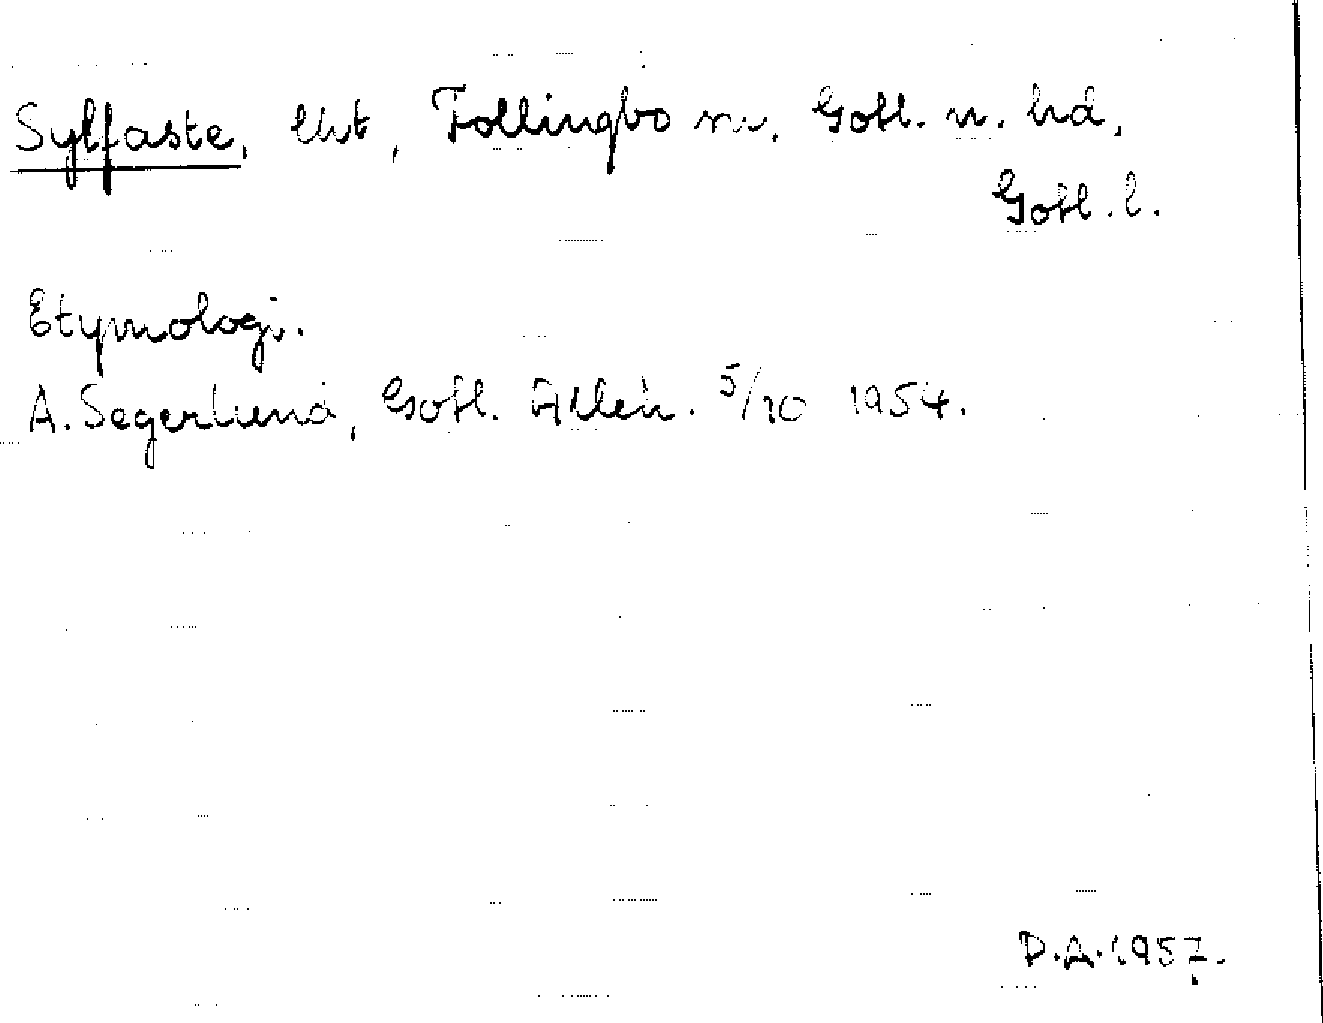 Sylfaste, Ekt, Follingbo sn, Gotl. n. hd,
Gotl. l.
Etymologi.
A. Segerlund, Gotl. Alleh. 5/10 1954.
D.A. 1957.